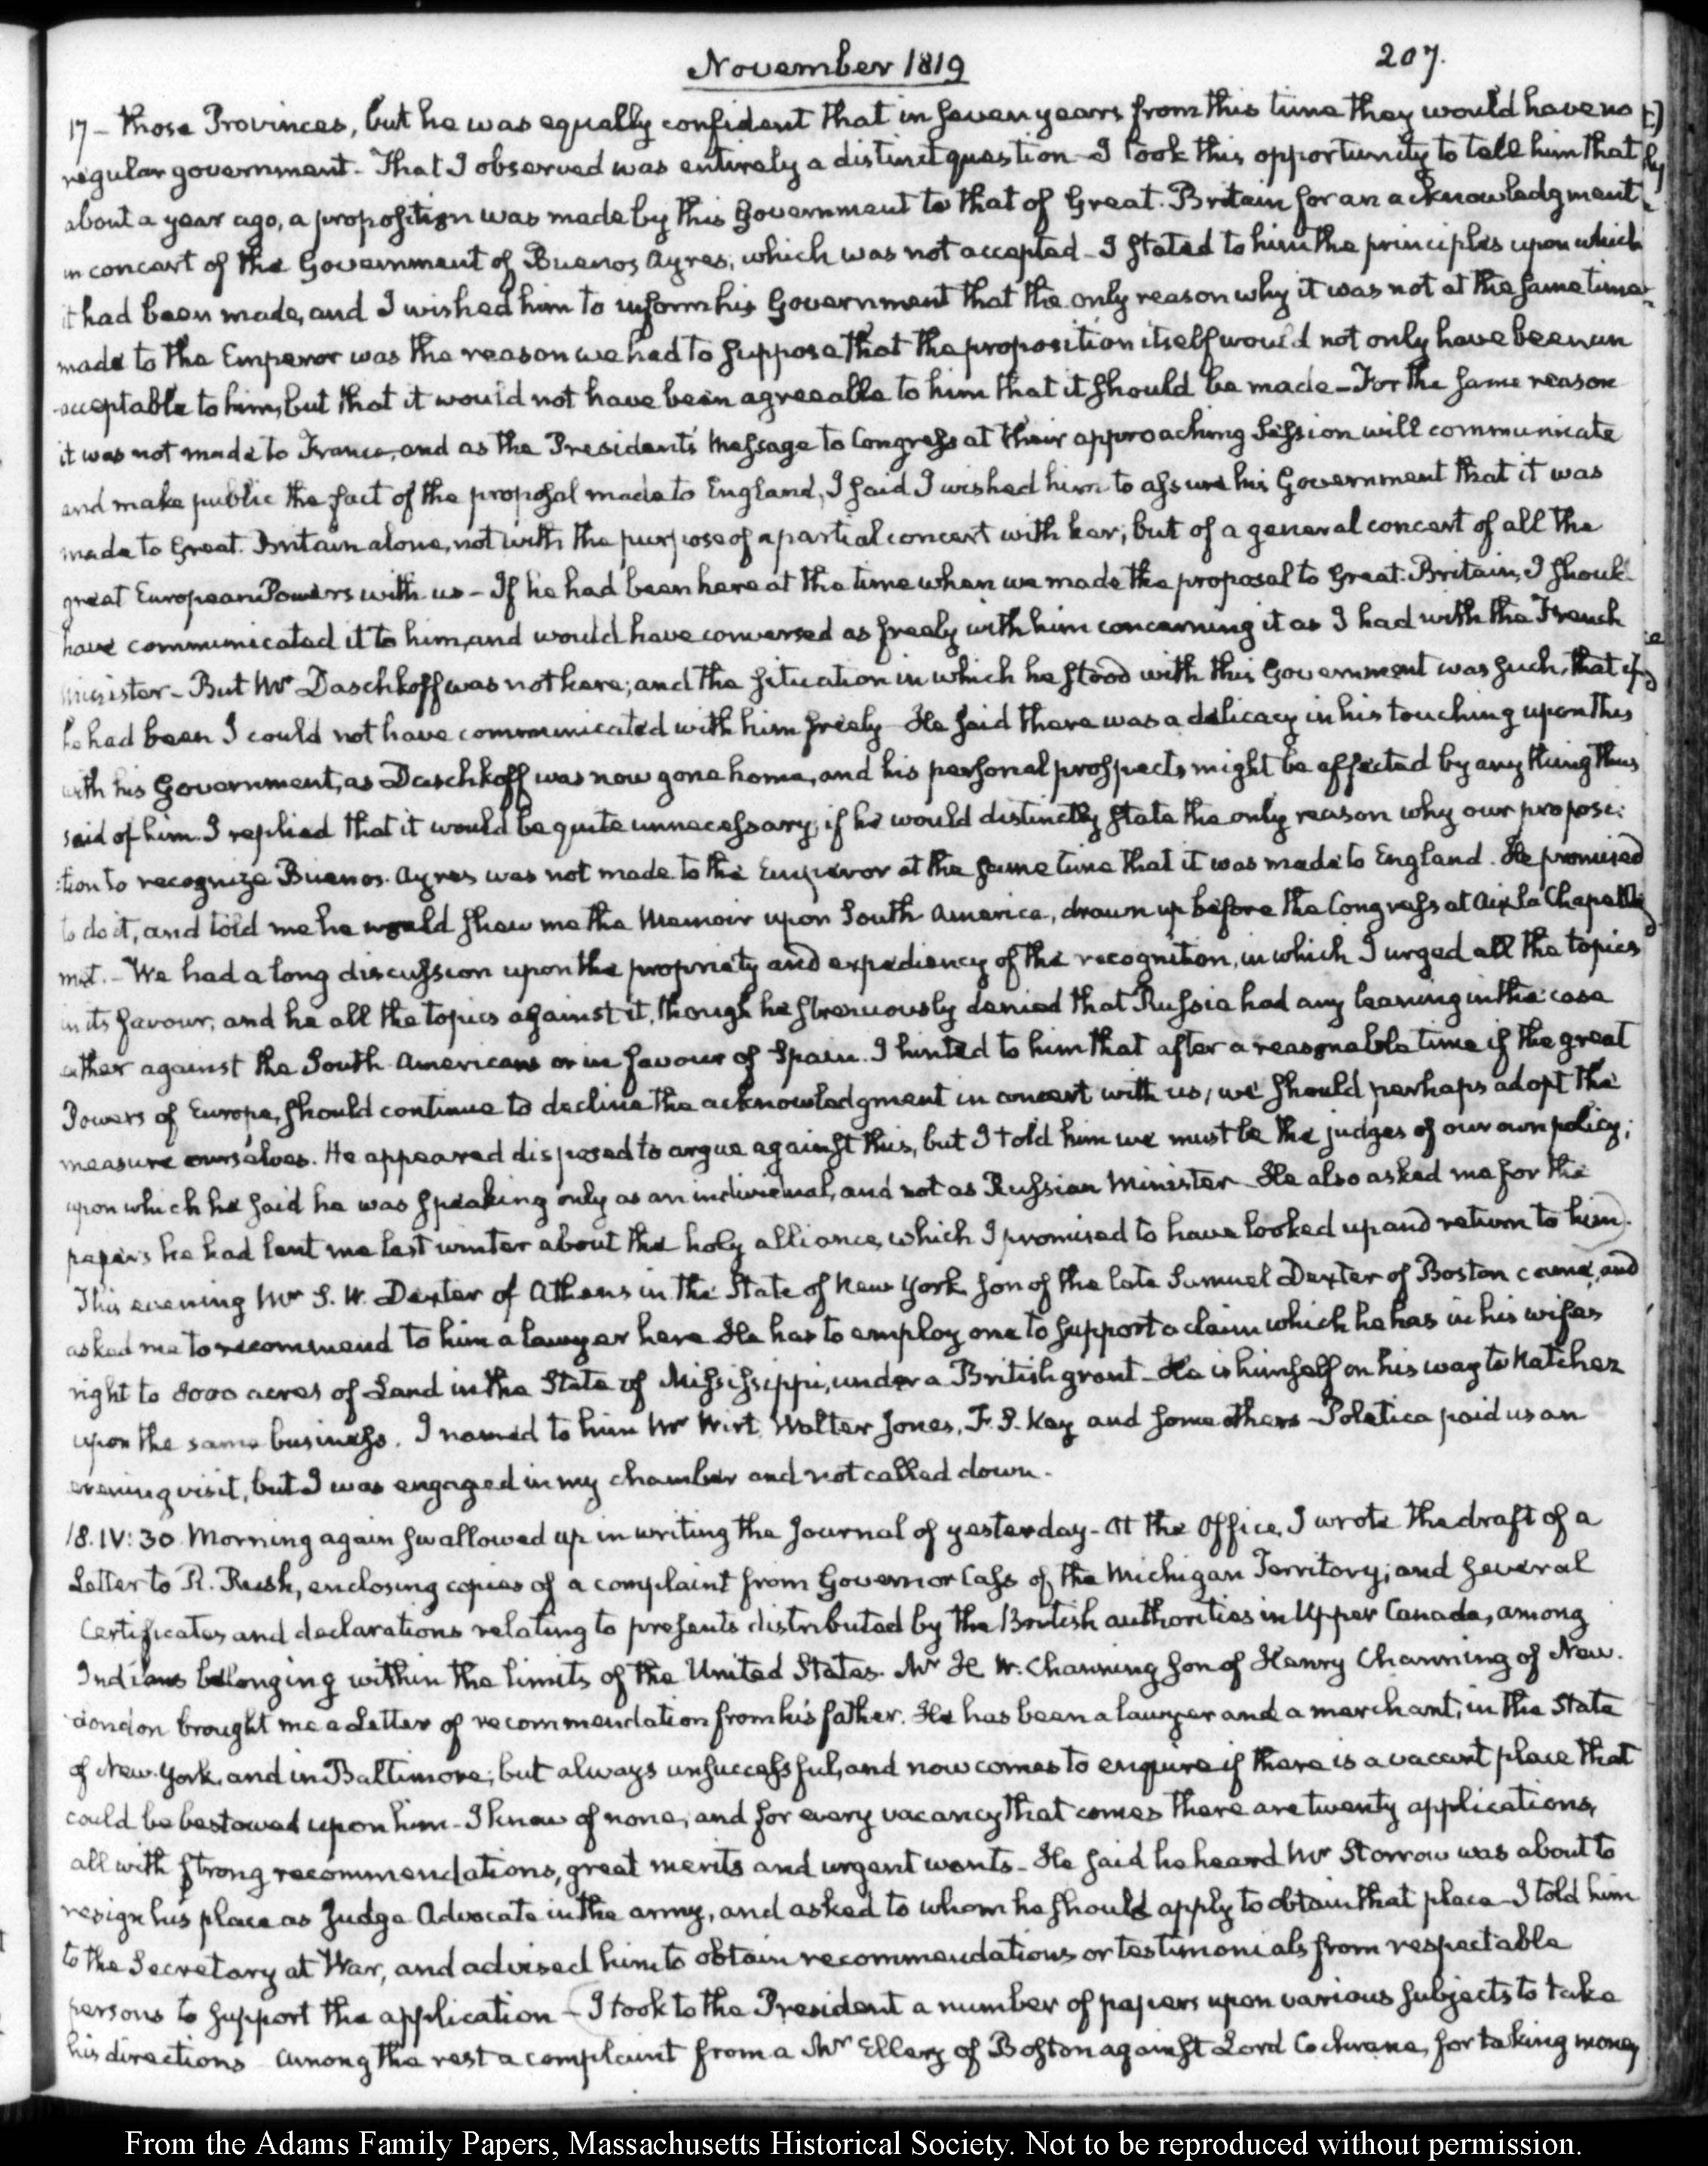 November 1819
207.
17 – those Provinces, but he was equally confident that in seven years from this time they would have no
regular government – That I observed was entirely a distinct question – I took this opportunity to tell him that
about a year ago, a proposition was made by this Government to that of Great-Britain for an acknowledgment
in concert of the Government of Buenos Ayres, which was not accepted – I stated to him the principles upon which
it had been made, and I wished him to inform his Government that the only reason why it was not at the same time
made to the Emperor was the reason we had to suppose that the proposition itself would not only have been un
acceptable to him, but that it would not have been agreeable to him that it should be made – For the same reason
it was not made to France, and as the President's Message to Congress at their approaching Session will communicate
and make public the fact of the proposal made to England, I said I wished him to assure his Government that it was
made to Great-Britain alone, not with the purpose of a partial concert with her; but of a general concert of all the
great European Powers with us – If he had been here at the time when we made the proposal to Great-Britain, I should
have communicated it to him, and would have conversed as freely with him concerning it as I had with the French
Minister – But Mr Daschkoff was not here; and the situation in which he stood with this Government was such, that if
he had been I could not have communicated with him freely – He said there was a delicacy in his touching upon this
with his Government, as Daschkoff was now gone home, and his personal prospects might be affected by any thing thus
said of him. I replied that it would be quite unnecessary; if he would distinctly state the only reason why our proposi:
:tion to recognize Buenos-Ayres was not made to the Emperor at the same time that it was made to England. He promised
to do it, and told me he would shew me the Memoir upon South America, drawn up before the Congress at Aix la Chapelle
met. – We had a long discussion upon the propriety and expediency of the recognition, in which I urged all the topics
in its favour, and he all the topics against it, though he strenuously denied that Russia had any leaning in the case
either against the South Americans or in favour of Spain. I hinted to him that after a reasonable time if the great
Powers of Europe, should continue to decline the acknowledgment in concert with us, we should perhaps adopt the
measure ourselves. He appeared disposed to argue against this, but I told him we must be the judges of our own policy;
upon which he said he was speaking only as an individual, and not as Russian Minister – He also asked me for the
papers he had lent me last winter about the holy alliance, which I promised to have looked up and return to him.
This evening Mr S. W. Dexter of Athens in the State of New York son of the late Samuel Dexter of Boston came, and
asked me to recommend to him a lawyer here. He has to employ one to support a claim which he has in his wifes
right to 8000 acres of Land in the State of Mississippi, under a British grant – He is himself on his way to Natchez
upon the same business. I named to him Mr Wirt, Walter Jones, F. S. Key and some others – Poletica paid us an
evening visit, but I was engaged in my chamber and not called down.
18. IV: 30. Morning again swallowed up in writing the Journal of yesterday – At the Office, I wrote the draft of a
Letter to R. Rush, enclosing copies of a complaint from Governor Cass of the Michigan Territory; and several
Certificates and declarations relating to presents distributed by the British authorities in Upper Canada, among
Indians belonging within the limits of the United States. Mr H. W. Channing son of Henry Channing of New-
London brought me a Letter of recommendation from his father. He has been a lawyer and a merchant, in the State
of New-York, and in Baltimore; but always unsuccessful, and now comes to enquire if there is a vacant place that
could be bestowed upon him – I know of none, and for every vacancy that comes there are twenty applications,
all with strong recommendations, great merits and urgent wants – He said he heard Mr Storrow was about to
resign his place as Judge Advocate in the army, and asked to whom he should apply to obtain that place – I told him
to the Secretary at War, and advised him to obtain recommendations or testimonials from respectable
persons to support the application – I took to the President a number of papers upon various subjects to take
his directions – Among the rest a complaint from a Mr Ellery of Boston against Lord Cochrane, for taking money
From the Adams Family Papers, Massachusetts Historical Society. Not to be reproduced without permission.